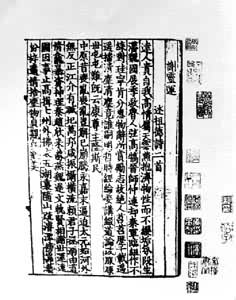 謝靈運
述祖德詩二首
達人貴自我高情屬天雲兼抱濟物性而不纓垢氛段生
蕃魏國展季救魯人弦高犒晉師仲連却秦軍臨組乍不
緤對珪寧肯分惠物辭所賞勵志故絕人苕苕歷千載遙
遙播清塵清塵竟誰嗣明哲時經綸委講綴道論改服康
世屯屯難既云康尊主隆斯民
中原昔喪亂喪亂豈解已崩騰永嘉末逼迫太元始河外
無反正江介有蹙圮萬邦咸震懾橫流賴君子拯溺由道
情龕暴資神理秦趙欣來蘇燕魏遲文軌賢相謝世運遠
圖因事止高揖七州外拂衣五湖裏隨山疏濬潭傍巖藝
枌梓遺情捨塵物貞觀丘壑美